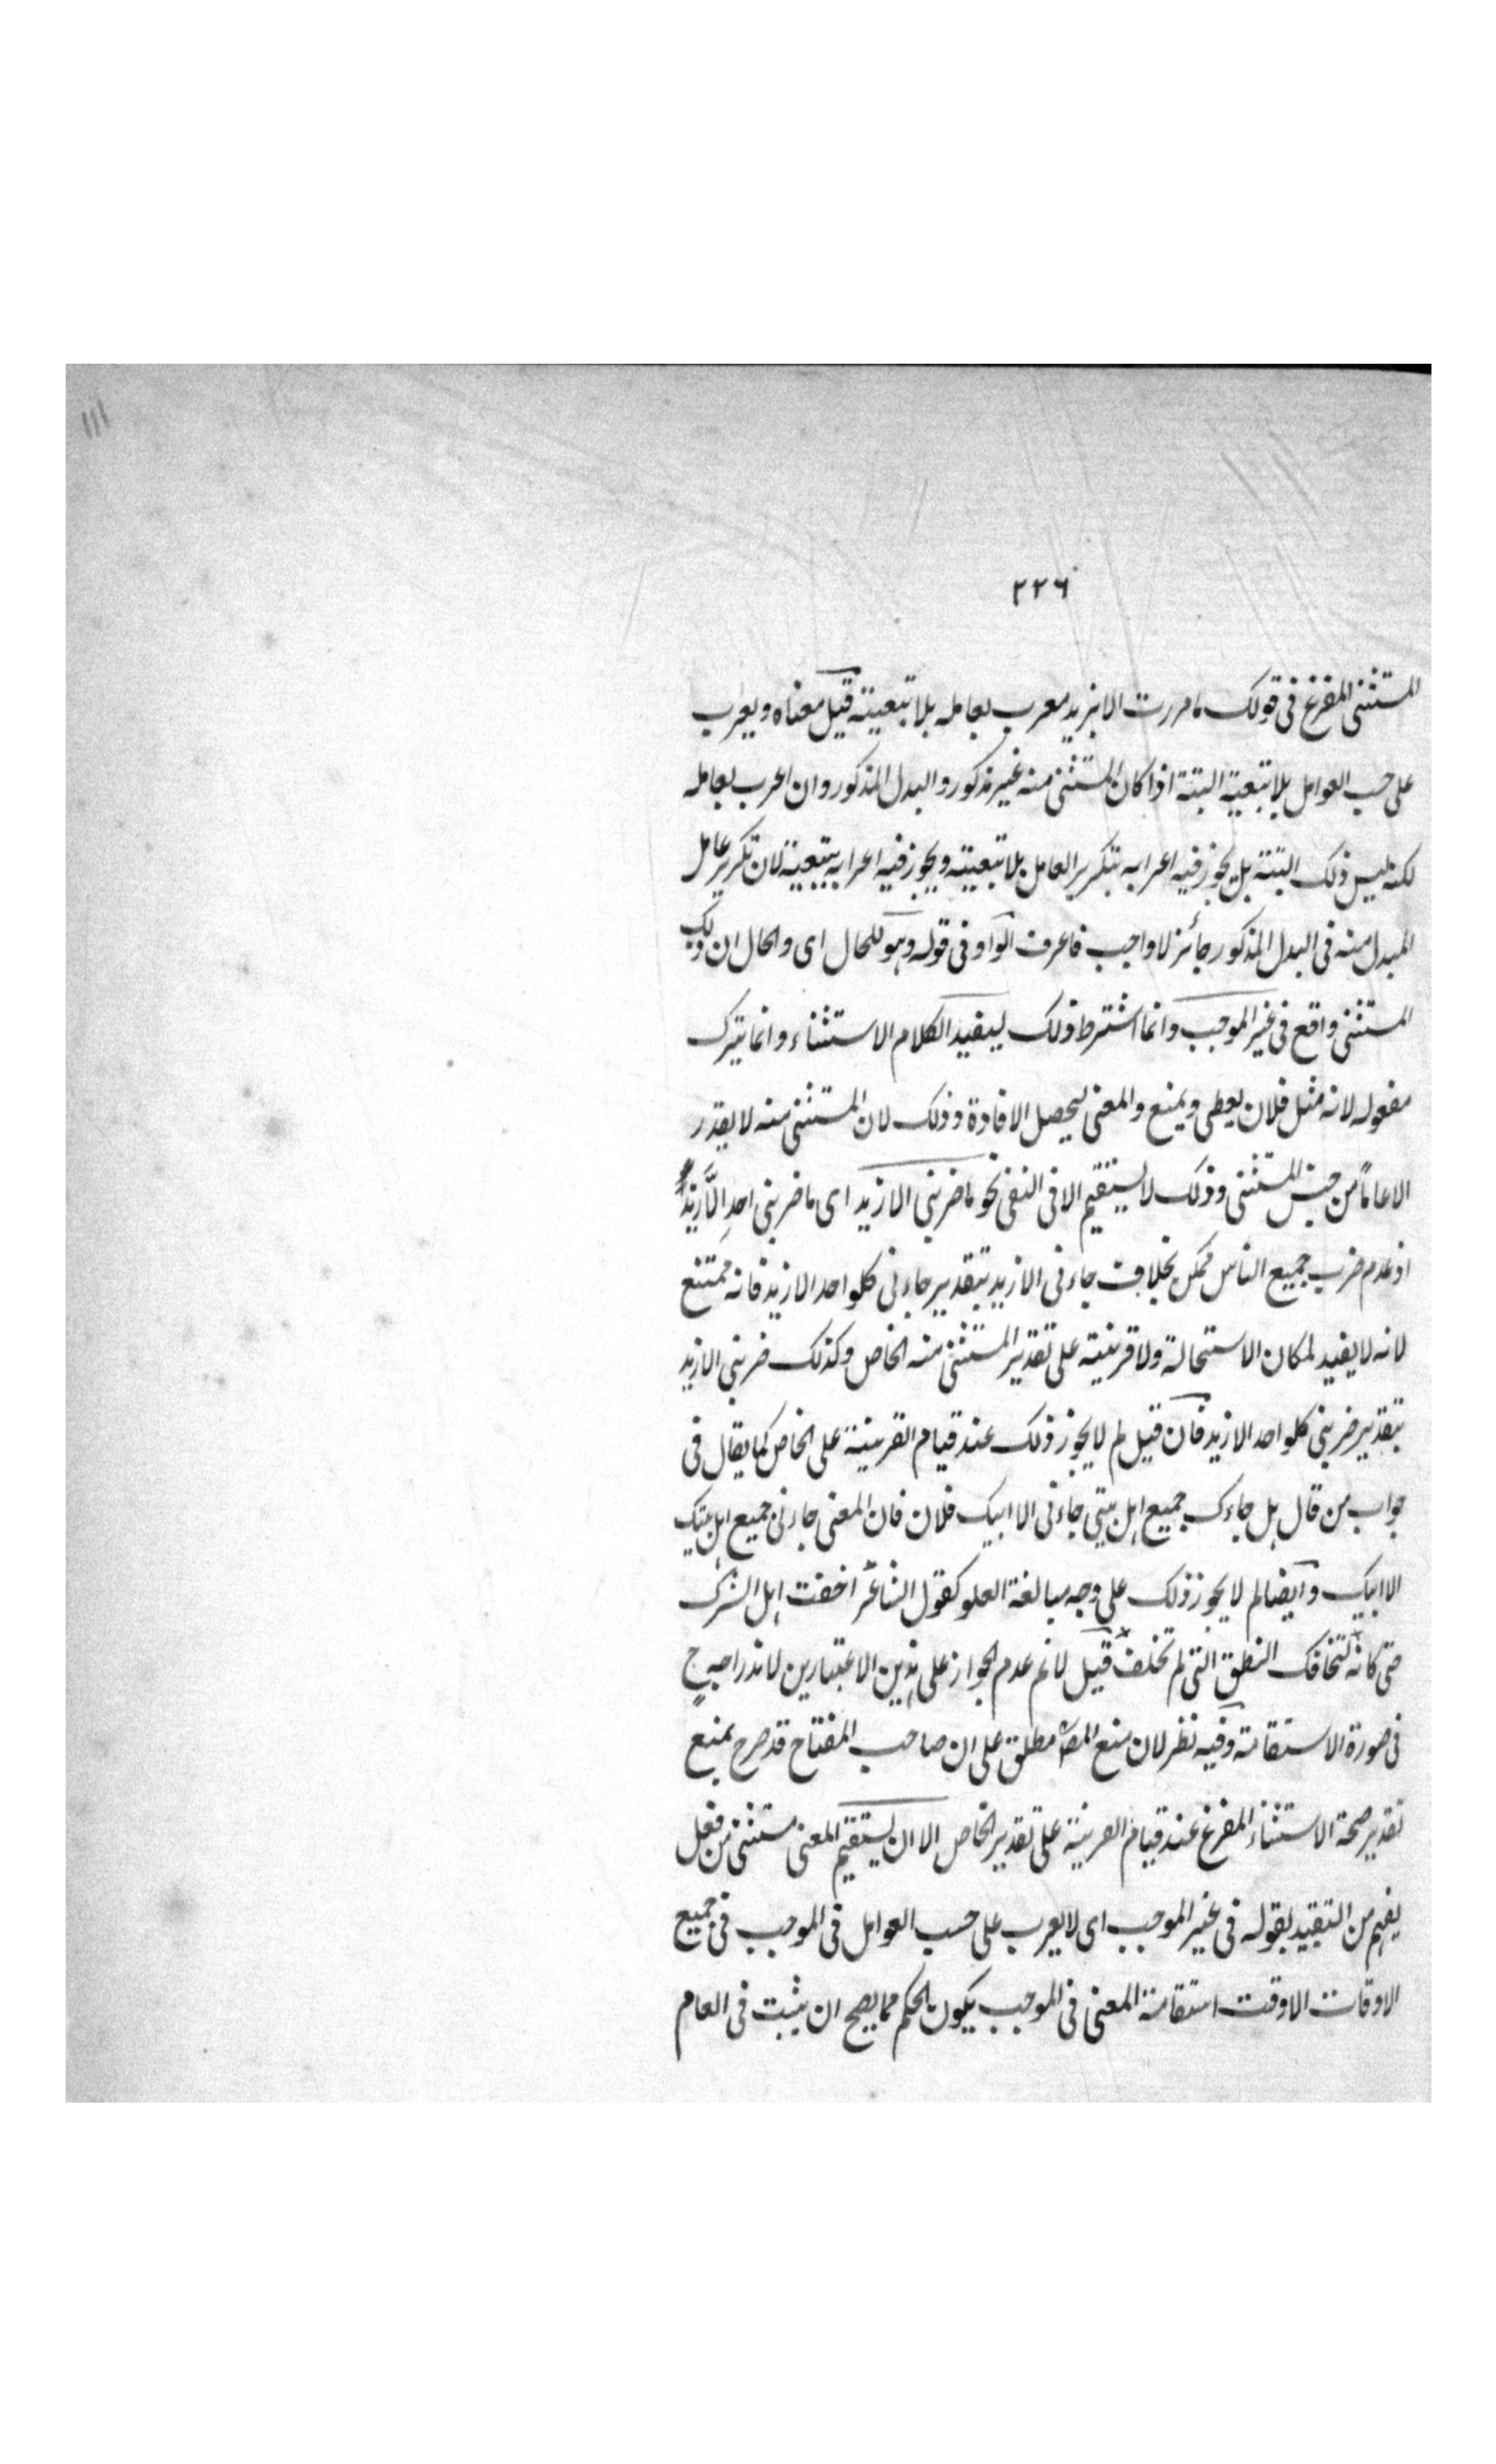 ١١١
٢٢٦
المستثنى المفرغ فى قولك ما مررت الا بزيد معرب بعامله بلا تبعيته قيل معناه ويعرب
على حسب العوامل بلا تبعية البتة اذا كان المستثنى منه غير مذكور والبدل المذكور وان اعرب بعامله
لكنه ليس ذلك البتة بل يجوز فيه اعرابه بتكرير العامل بلا تبعيته ويجوز فيه اعرابه بتبعية لان تكرير عامل
المبدل منه فى البدل المذكور جائز لا واجب فاعرف الواو فى قوله وهو للحال اى والحال ان ذلك
المستثنى واقع فى غير الموجب وانما اشترط ذلك ليفيد الكلام الاستثناء وانما يترك
مفعوله لانه مثل فلان يعطى ويمنع والمعنى ليحصل الافادة وذلك لان المستثنى منه لا يقدر
الا عاماً من جنس المستثنى وذلك لا يستقيم الا فى النفى نحو ما ضربنى الا زيد اى ما ضربنى احد الا زيد
اذ عدم ضرب جميع الناس ممكن بخلاف جاءنى الا زيد بتقدير جاءنى كلواحد الا زيد فانه ممتنع
لانه لا يفيد لمكان الاستحالة ولا قرينة على تقدير المستثنى منه الخاص وكذلك ضربنى الا زيد
بتقدير ضربنى كلواحد الا زيد فان قيل لم لا يجوز ذلك عند قيام القرينة على الخاص كما يقال فى
جواب من قال هل جاءك جميع اهل بيتى جاءنى الا ابيك فلان فان المعنى جاءنى جميع اهل بيتك
الا ابيك وايضا لم لا يجوز ذلك على وجه مبالغة العلو كقول الشاعر اخفت اهل الشرك
حتى كانه لتخافك النطق التى لم تخلق قيل لا نم عدم الجواز على هذين الاعتبارين لاندراجه ح
فى صورة الاستقامة وفيه نظر لان منع المص مطلق على ان صاحب المفتاح قد صرح بمنع
تقدير صحة الاستثناء المفرغ عند قيام القرينة على تقدير الخاص الا ان يستقيم المعنى مستثنى من فعل
يفهم من التقييد بقوله فى غير الموجب اى لا يعرب على حسب العوامل فى الموجب فى جميع
الاوقات الا وقت استقامة المعنى فى الموجب يكون الحكم مما يصح ان يثبت فى العام